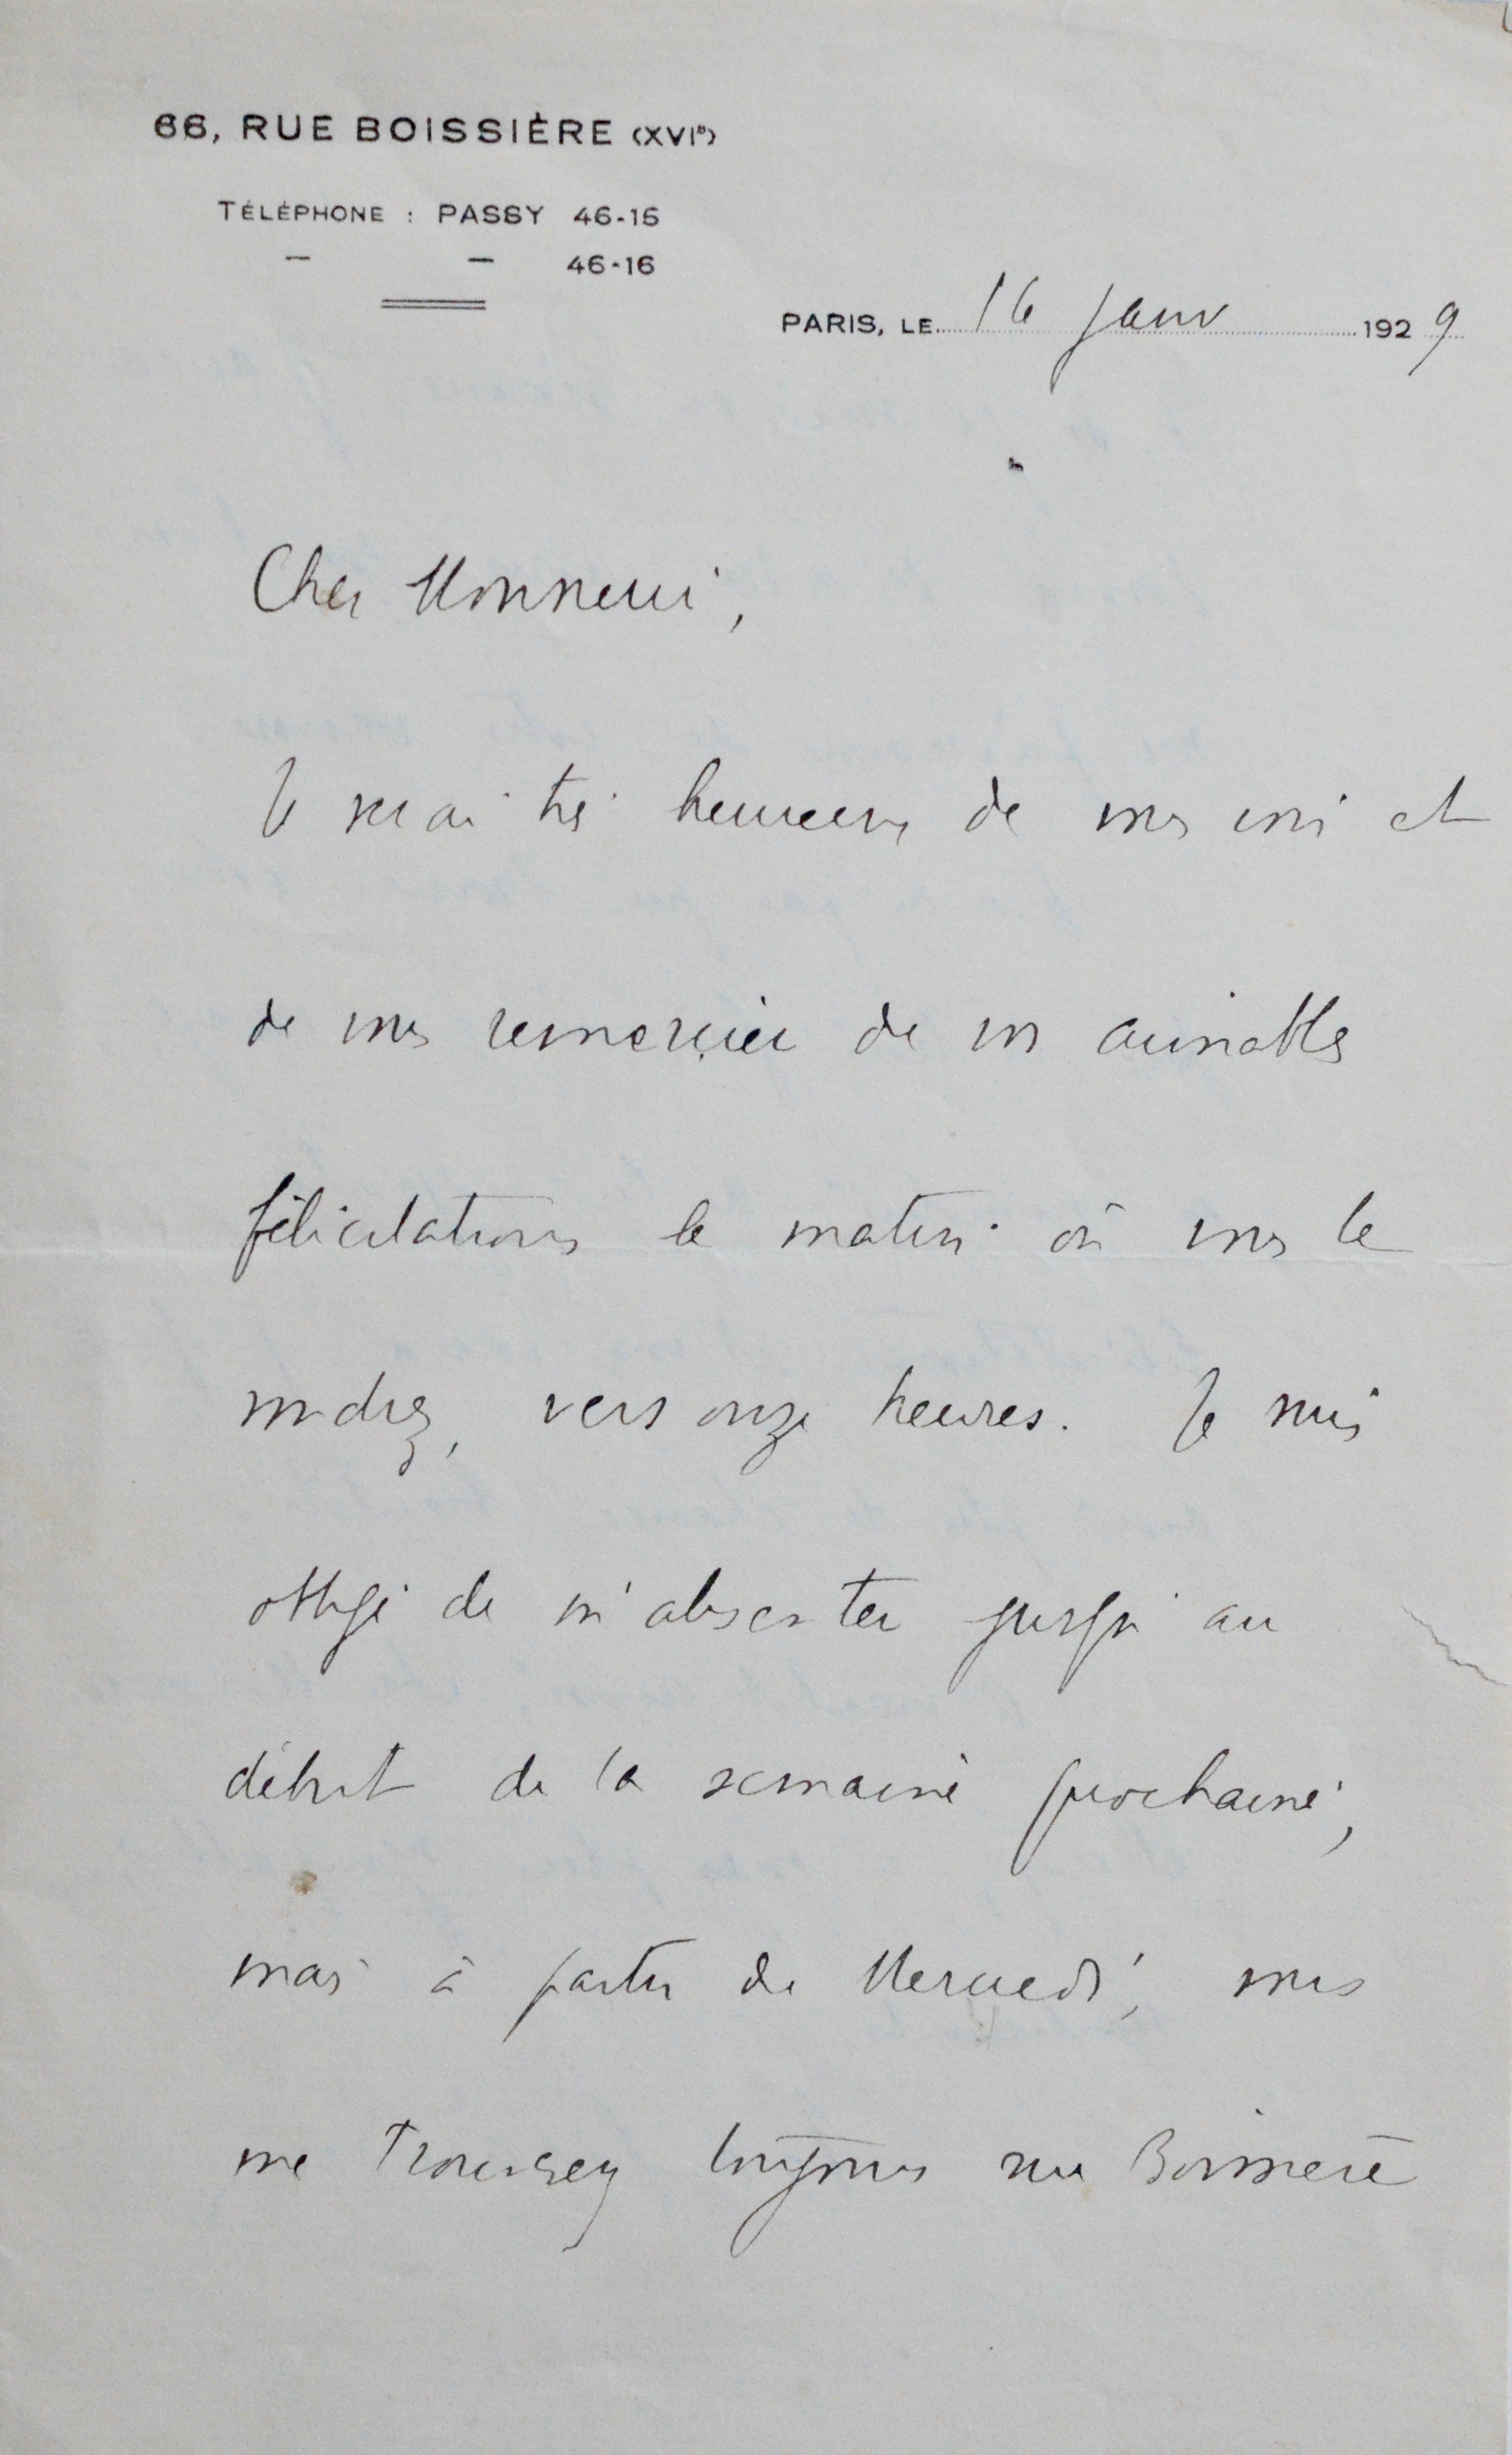 66, RUE BOISSIÈRE (XVIe)
TÉLÉPHONE : PASSY 46-15
— — 46-16
PARIS, LE 16 Janv 1929
Cher Monsieur,
Je serai très heureux de vous voir et
de vous remercier de vos aimables
félicitations le matin où vous le
voudrez, vers onze heures. Je suis
obligé de m'absenter jusqu'au
début de la semaine prochaine,
mais à partir de Mercredi, vous
me trouverez toujours rue Boissière